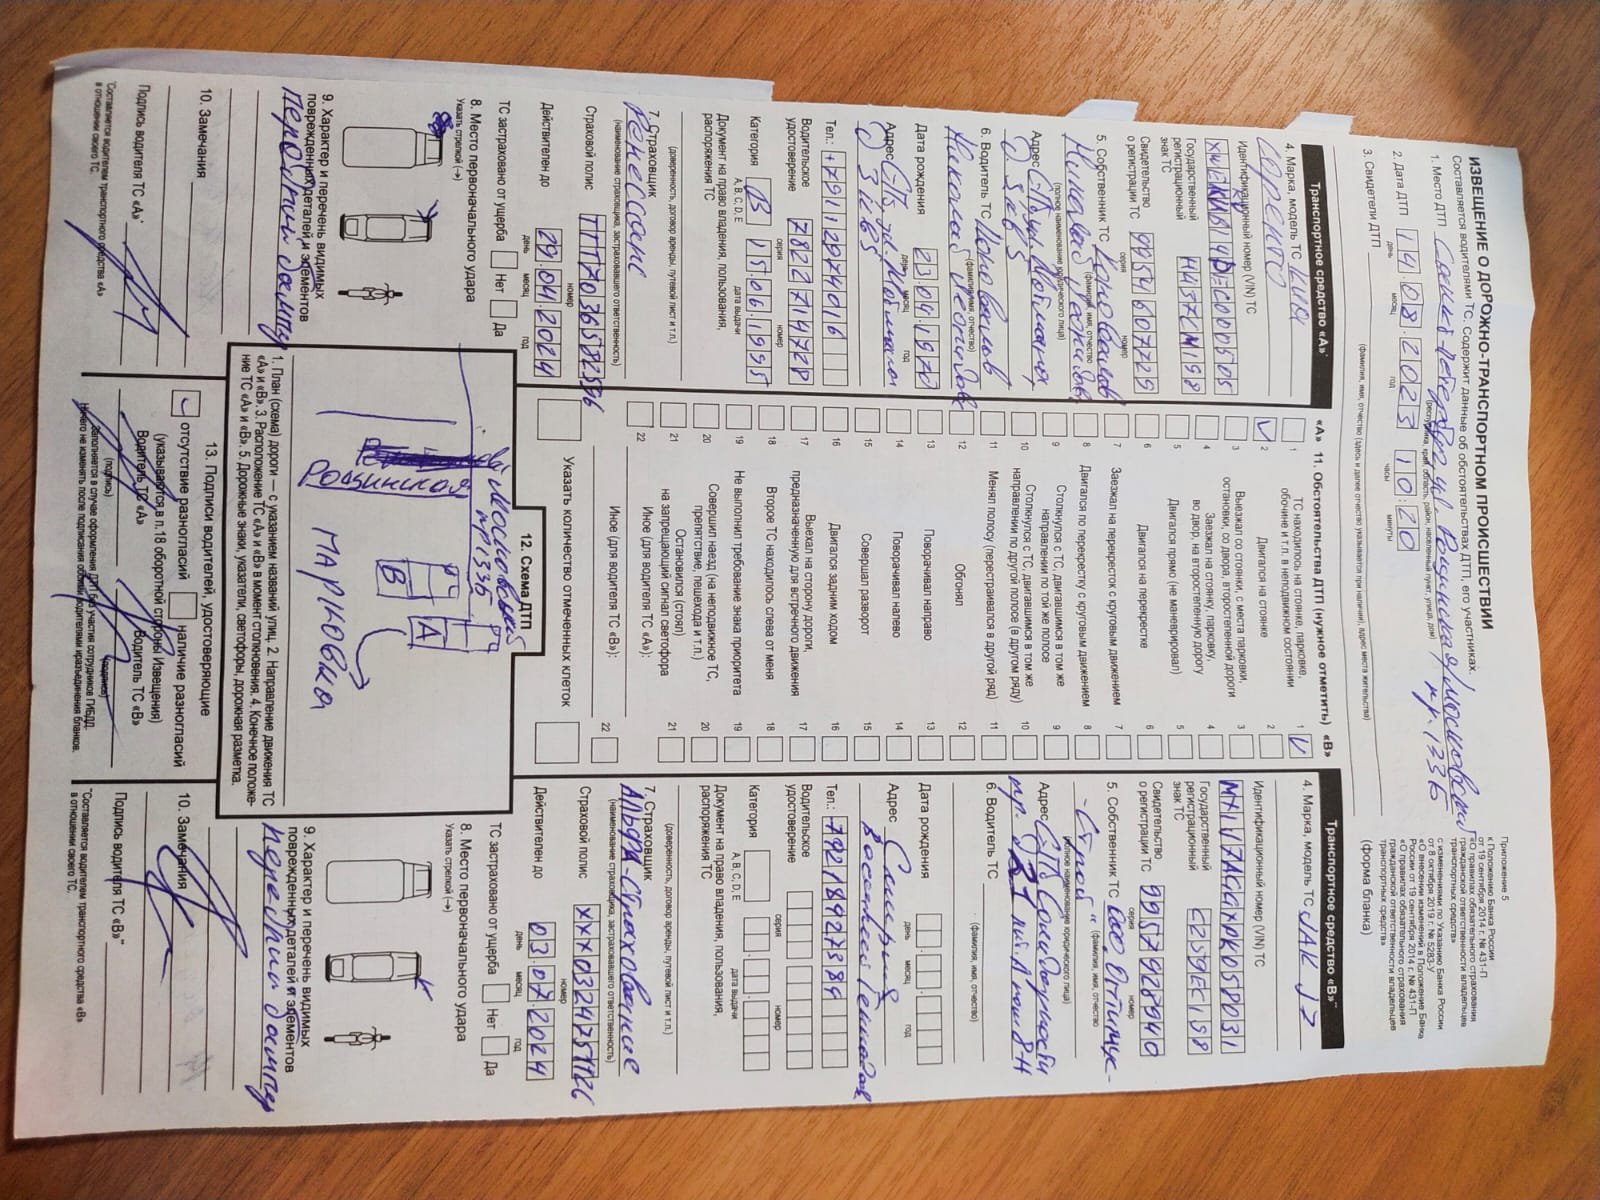 Приложение 5
к Положению Банка России
от 19 сентября 2014 г. № 431-П
«О правилах обязательного страхования
гражданской ответственности владельцев
транспортных средств»
с изменениями по Указанию Банка России
от 8 октября 2019 г. № 5283-У
«О внесении изменений в Положение Банка
России от 19 сентября 2014 г. № 431-П
«О правилах обязательного страхования
гражданской ответственности владельцев
транспортных средств»
(форма бланка)
ИЗВЕЩЕНИЕ О ДОРОЖНО-ТРАНСПОРТНОМ ПРОИСШЕСТВИИ
Составляется водителями ТС. Содержит данные об обстоятельствах ДТП, его участниках.
1. Место ДТП Санкт-Петербург, ул. Рощинская/Московский
пр. 133Б
(республика, край, область, район, населенный пункт, улица, дом)
2. Дата ДТП 14.08.2023 10:20
день месяц год часы минуты
3. Свидетели ДТП
(фамилия, имя, отчество (здесь и далее отчество указывается при наличии), адрес места жительства)
Транспортное средство «А»*
4. Марка, модель ТС Киа
Соренто
Идентификационный номер (VIN) ТС
Государственный
регистрационный
знак ТС Н437СМ198
Свидетельство
о регистрации ТС 9954 607725
серия номер
5. Собственник ТС Коновалов
(фамилия, имя, отчество
Николай Леонидов
(полное наименование юридического лица)
Адрес СПб, ул.
6. Водитель ТС Коновалов
(фамилия, имя, отчество)
Николай Леонидов
Дата рождения 23.04.1972
день месяц год
Адрес СПб, ул.
Тел.: +79112974016
Водительское
удостоверение 7822 714728
серия номер
Категория B 15.06.1995
A, B, C, D, E дата выдачи
Документ на право владения, пользования,
распоряжения ТС
(доверенность, договор аренды, путевой лист и т.п.)
7. Страховщик
Ренессанс
(наименование страховщика, застраховавшего ответственность)
Страховой полис ТТТ7036582596
номер
Действителен до 29.04.2024
день месяц год
ТС застраховано от ущерба Нет Да
8. Место первоначального удара
Указать стрелкой (→)
9. Характер и перечень видимых
поврежденных деталей и элементов
передний бампер
10. Замечания
Подпись водителя ТС «А»*
*Составляется водителем транспортного средства «А»
в отношении своего ТС.
«А» 11. Обстоятельства ДТП (нужное отметить) «В»
1 ТС находилось на стоянке, парковке,
обочине и т.п. в неподвижном состоянии 1 V
2 V Двигался на стоянке 2
3 Выезжал со стоянки, с места парковки,
остановки, со двора, второстепенной дороги 3
4 Заезжал на стоянку, парковку,
во двор, на второстепенную дорогу 4
5 Двигался прямо (не маневрировал) 5
6 Двигался на перекрестке 6
7 Заезжал на перекресток с круговым движением 7
8 Двигался по перекрестку с круговым движением 8
9 Столкнулся с ТС, двигавшимся в том же
направлении по той же полосе 9
10 Столкнулся с ТС, двигавшимся в том же
направлении по другой полосе (в другом ряду) 10
11 Менял полосу (перестраивался в другой ряд) 11
12 Обгонял 12
13 Поворачивал направо 13
14 Поворачивал налево 14
15 Совершал разворот 15
16 Двигался задним ходом 16
17 Выехал на сторону дороги,
предназначенную для встречного движения 17
18 Второе ТС находилось слева от меня 18
19 Не выполнил требование знака приоритета 19
20 Совершил наезд (на неподвижное ТС,
препятствие, пешехода и т.п.) 20
21 Остановился (стоял)
на запрещающий сигнал светофора 21
22 Иное (для водителя ТС «А»):
Иное (для водителя ТС «В»): 22
Указать количество отмеченных клеток
12. Схема ДТП
Московский
пр 133Б
Рощинская
А
В
ПАРКОВКА
1. План (схема) дороги — с указанием названий улиц. 2. Направление движения ТС
«А» и «В». 3. Расположение ТС «А» и «В» в момент столкновения. 4. Конечное положе-
ние ТС «А» и «В». 5. Дорожные знаки, указатели, светофоры, дорожная разметка.
13. Подписи водителей, удостоверяющие
отсутствие разногласий наличие разногласий
(указываются в п. 18 оборотной стороны Извещения)
Водитель ТС «А» Водитель ТС «В»
(подпись) (подпись)
Заполняется в случае оформления ДТП без участия сотрудников ГИБДД.
Ничего не изменять после подписания обоими водителями и разъединения бланков.
Транспортное средство «В»**
4. Марка, модель ТС JAK J7
Идентификационный номер (VIN) ТС
Государственный
регистрационный
знак ТС Е259ЕС198
Свидетельство
о регистрации ТС 9957 928940
серия номер
5. Собственник ТС ООО
(фамилия, имя, отчество
-Строй"
(полное наименование юридического лица)
Адрес СПб, Солидарности
пр.
6. Водитель ТС
(фамилия, имя, отчество)
Дата рождения
день месяц год
Адрес Смирнов
Василий Геннадьев
Тел.: 79218927389
Водительское
удостоверение
серия номер
Категория
A, B, C, D, E дата выдачи
Документ на право владения, пользования,
распоряжения ТС
(доверенность, договор аренды, путевой лист и т.п.)
7. Страховщик
Альфа-страхование
(наименование страховщика, застраховавшего ответственность)
Страховой полис ХХХ0324751126
номер
Действителен до 03.07.2024
день месяц год
ТС застраховано от ущерба Нет Да
8. Место первоначального удара
Указать стрелкой (→)
9. Характер и перечень видимых
поврежденных деталей и элементов
передний бампер
10. Замечания
Подпись водителя ТС «В»**
**Составляется водителем транспортного средства «В»
в отношении своего ТС.